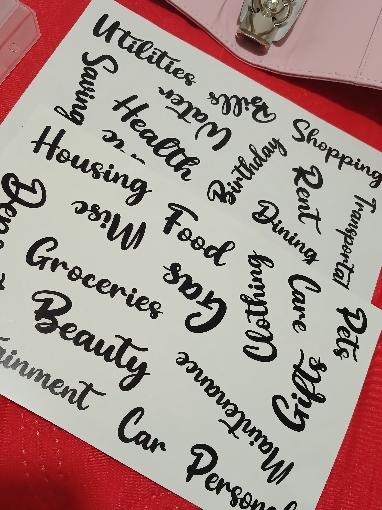 Utilities
Saving
Water
Bills
Health
Shopping
Birthday
Housing
Rent
Transportal
Dining
Misc
Food
Groceries
Gas
Clothing
Care
Pets
Beauty
Maintenance
Gifts
ainment
Car
Persona